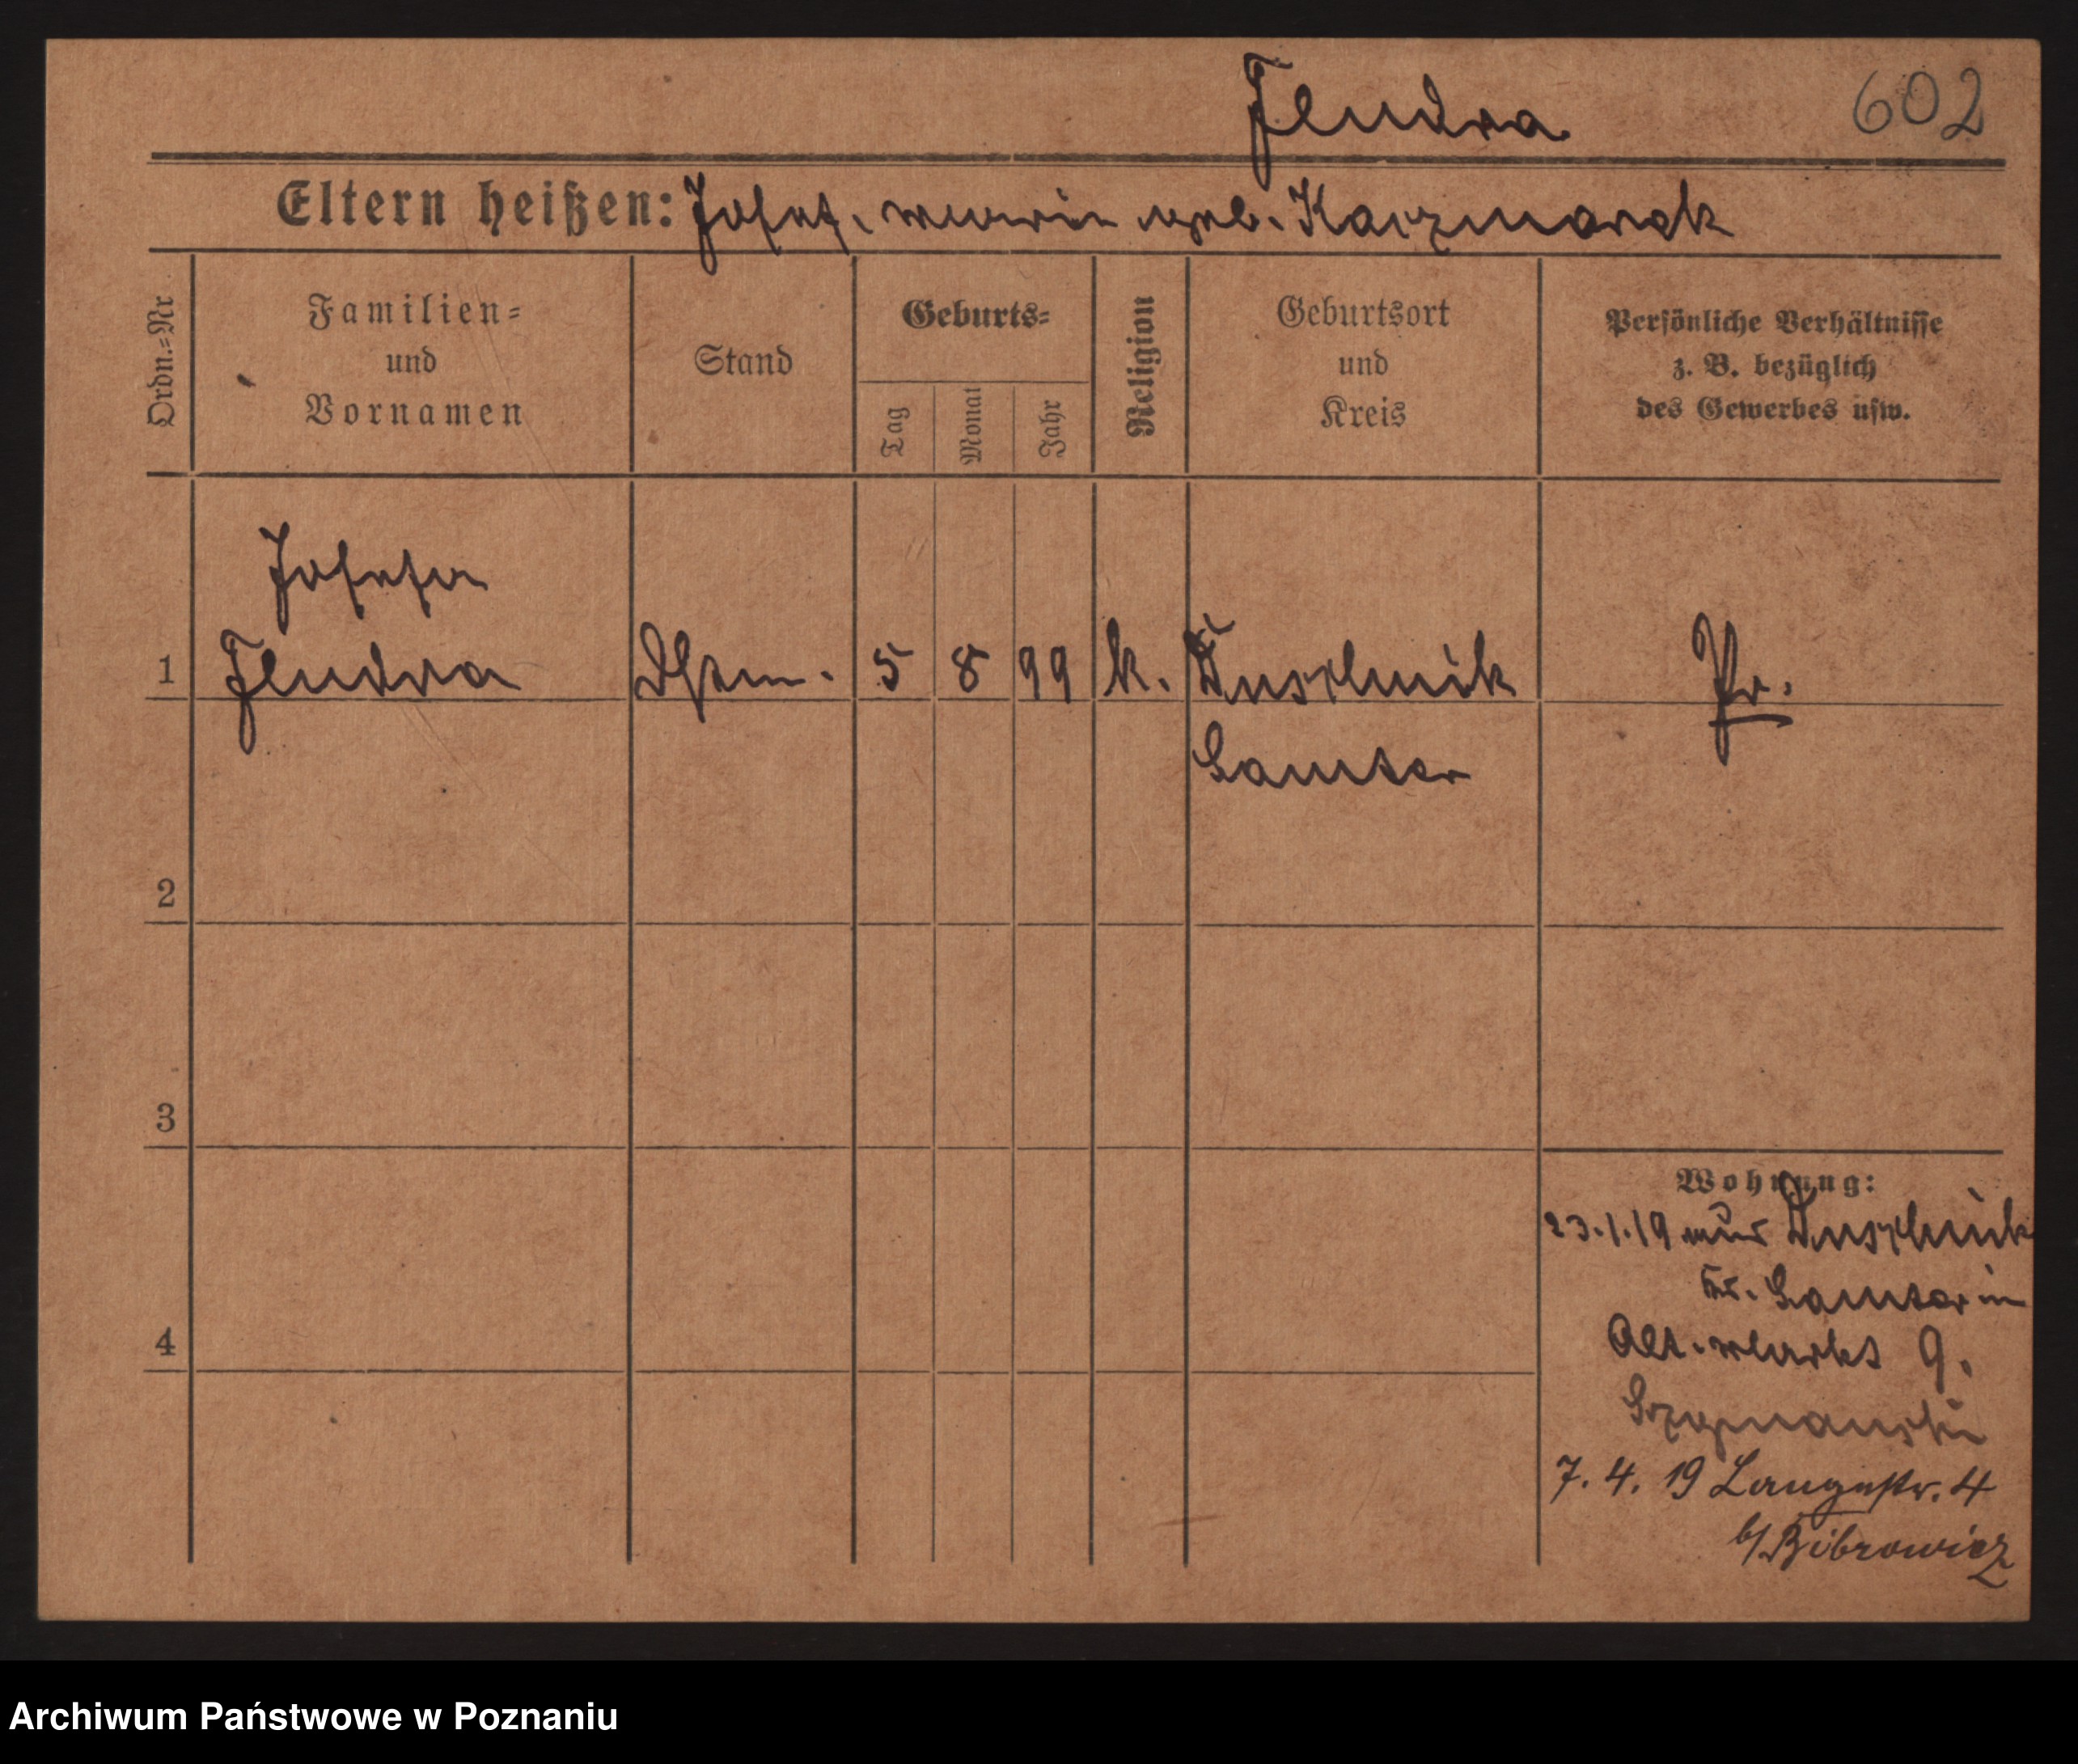 Fludra 602
Eltern heißen: Josef, Maria geb. Kaczmarek
Ordn.=Nr
Familien=
und
Vornamen
Stand
Geburts=
Tag
Monat
Jahr
Religion
Geburtsort
und
Kreis
Persönliche Verhältnisse
z. B. bezüglich
des Gewerbes usw.
Josefa
1 Fludra 5 8 99 k. Duschnik Pr.
Samter
2
3
Wohnung:
23.1.19 aus Duschnik
Kr. Samter in
4 Alt. Markt 9.
7. 4. 19 Langestr. 4
b/Bibrowicz
Archiwum Państwowe w Poznaniu